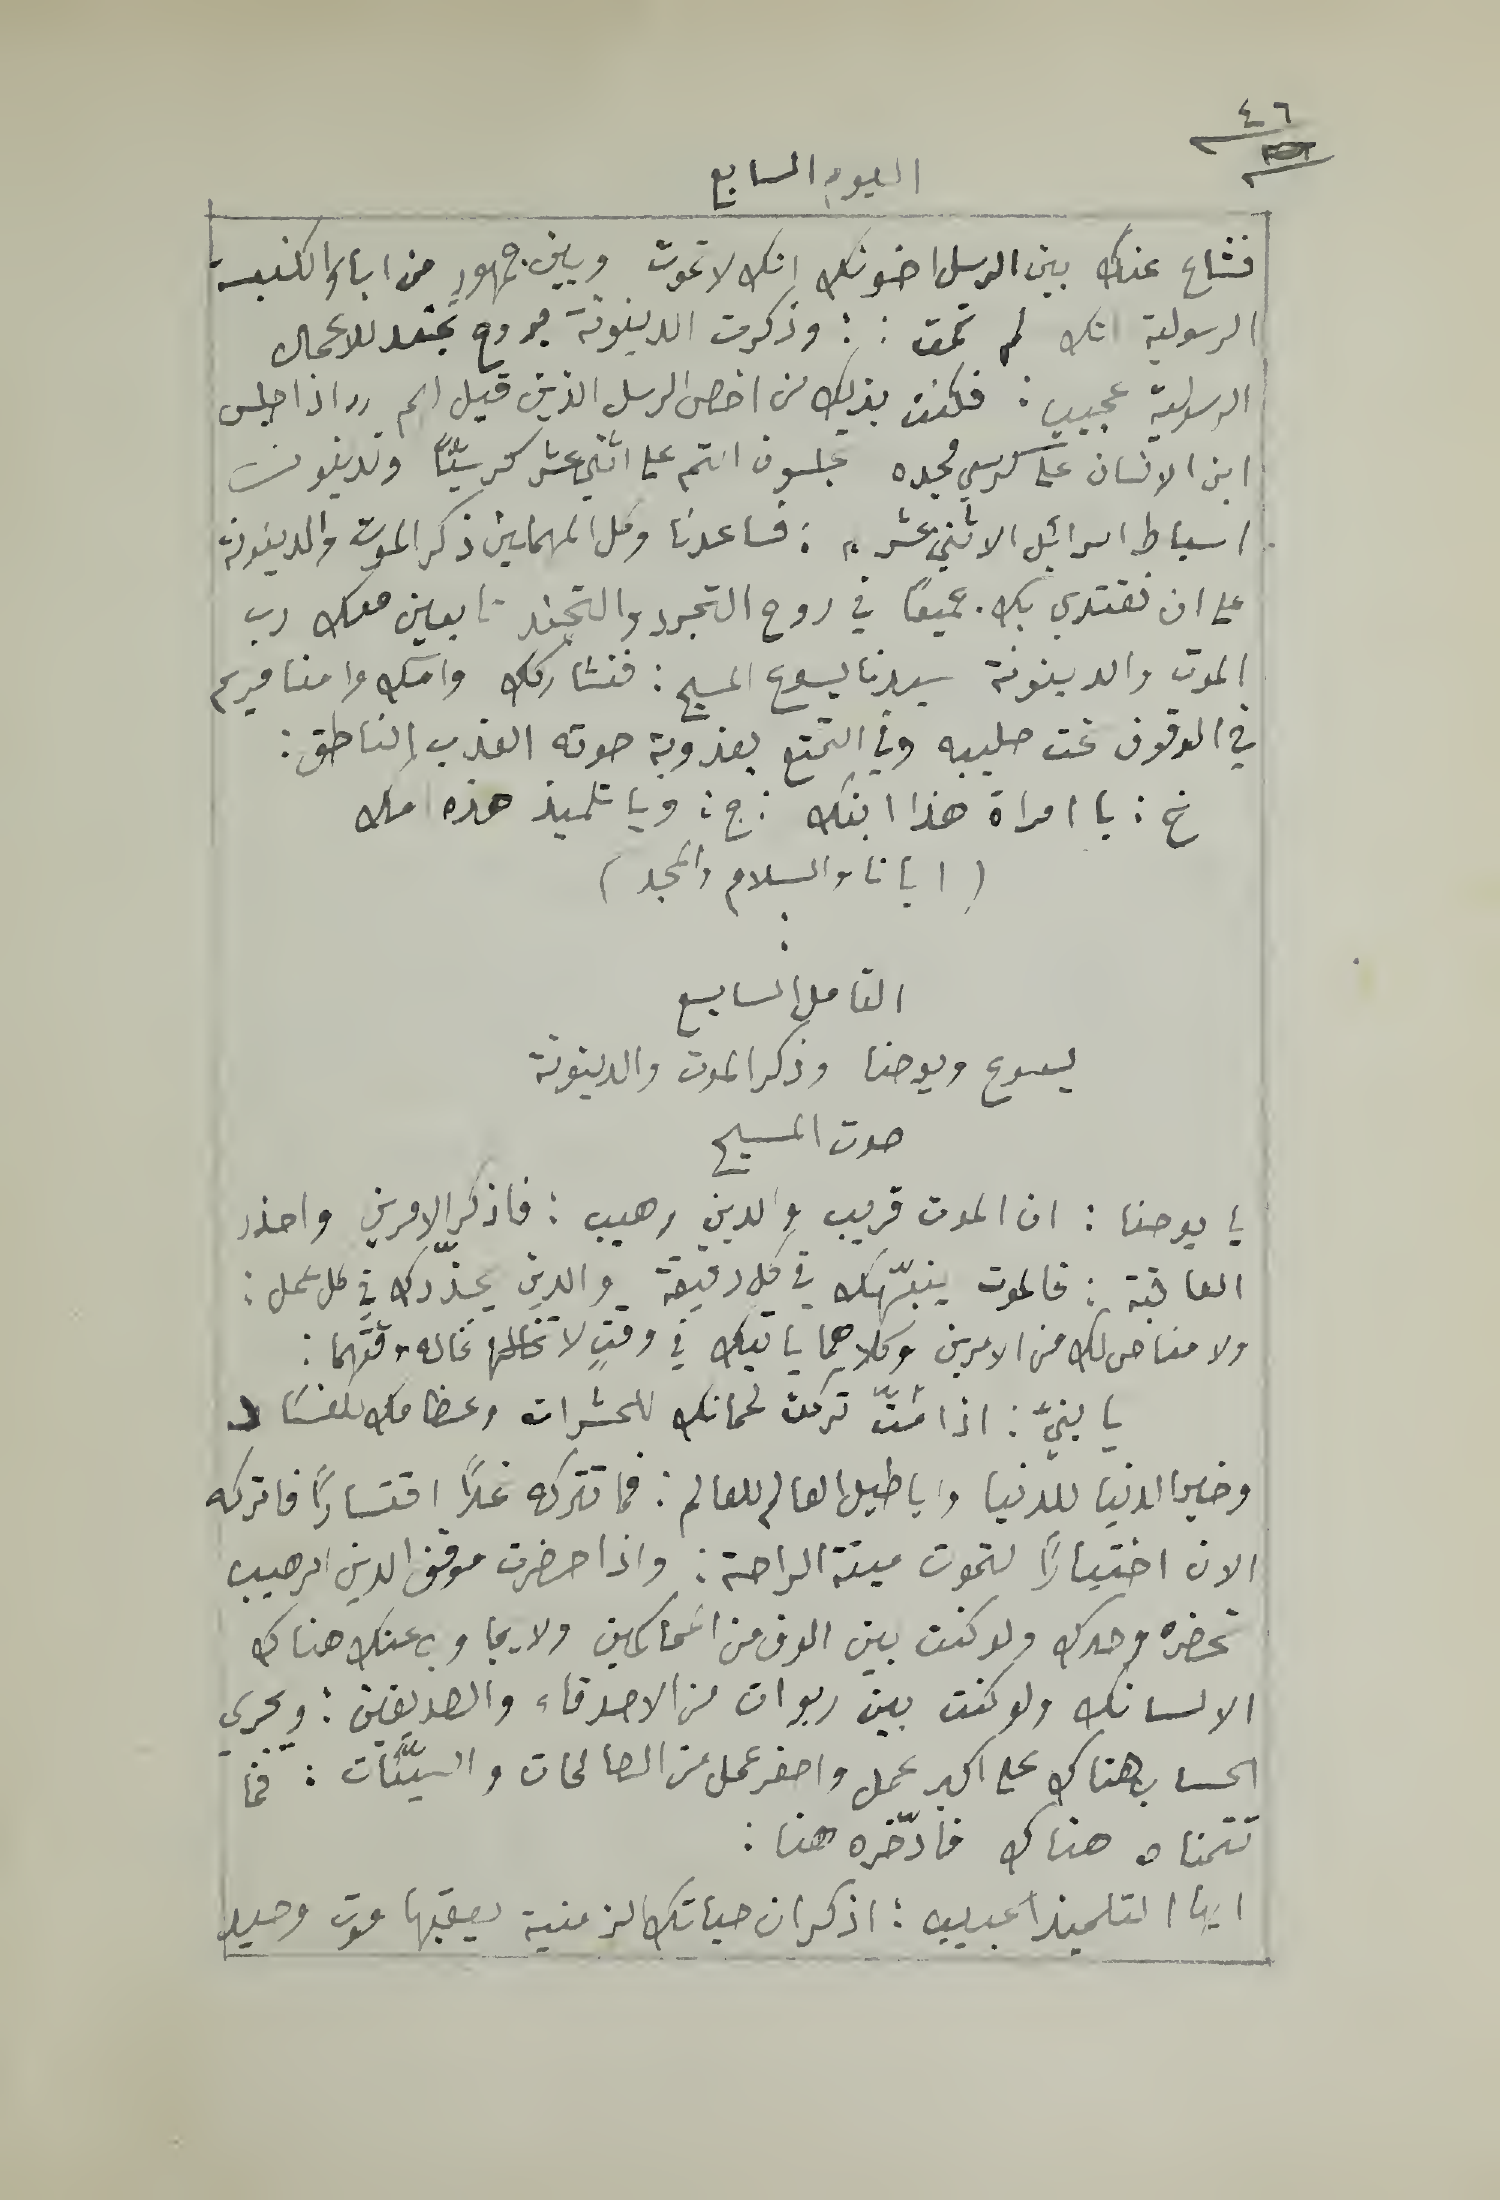 ٤٦
اليوم السابع
فشاع عنك بين الرسل اخوتك انك لا تموت وبين جمهور من اباء الكنيسة
الرسولية انك لم تمت : : وذكرت الدينونة بروح تجند للاعمال
الرسولية عجيب : فكنت بذلك من اخص الرسل الذين قيل لهم "اذا جلس
ابن الانسان على كرسي مجده تجلسون انتم على اثني عشر كرسيًّا وتدينون
اسباط اسرائيل الاثني عشر" : فساعدنا وكل المهملين ذكر الموت والدينونة
على ان نقتدي بك جميعًا في روح التجرد والتجند تابعين معك رب
الموت والدينونة سيدنا يسوع المسيح : فنشاركك وامك وامنا مريم
في الوقوف تحت صليبه وفي التمتع بعذوبة صوته العذب الناطق :
خ : يا امراة هذا ابنك : ج : ويا تلميذ هذه امك
( ابانا والسلام والمجد )
:
التامل السابع
يسوع ويوحنا وذكر الموت والدينونة
صوت المسيح
يا يوحنا : ان الموت قريب والدين رهيب : فاذكر الامرين واحذر
العاقبة : فالموت ينبّهك في كل دقيقة والدين يحذّرك في كل عمل :
ولا مناص لك من الامرين وكلاهما ياتيك في وقتٍ لا تخالها وقتهما :
يا بنيّ : اذا متّ تركت لحمانك للحشرات وعظامك للفساد
وخير الدنيا للدنيا واباطيل العالم للعالم : فما تتركه غدًا اقتسارًا فاتركه
الان اختيارًا لتموت ميتة الراحة : واذا حضرت موقف الدين الرهيب
تحضره وحدك ولو كنت بين الوف من المحاكمين ولا يجاوب عنك هناك
الا لسانك ولو كنت بين ربوات من الاصدقاء والصديقين : ويجري
الحساب هناك على اكبر عمل واصغر عمل من الصالحات والسيّئات : فما
تتمناه هناك فادّخره هنا :
ايها التلميذ الحبيب : اذكر ان حياتك الزمنية يعقبها موت وحيد